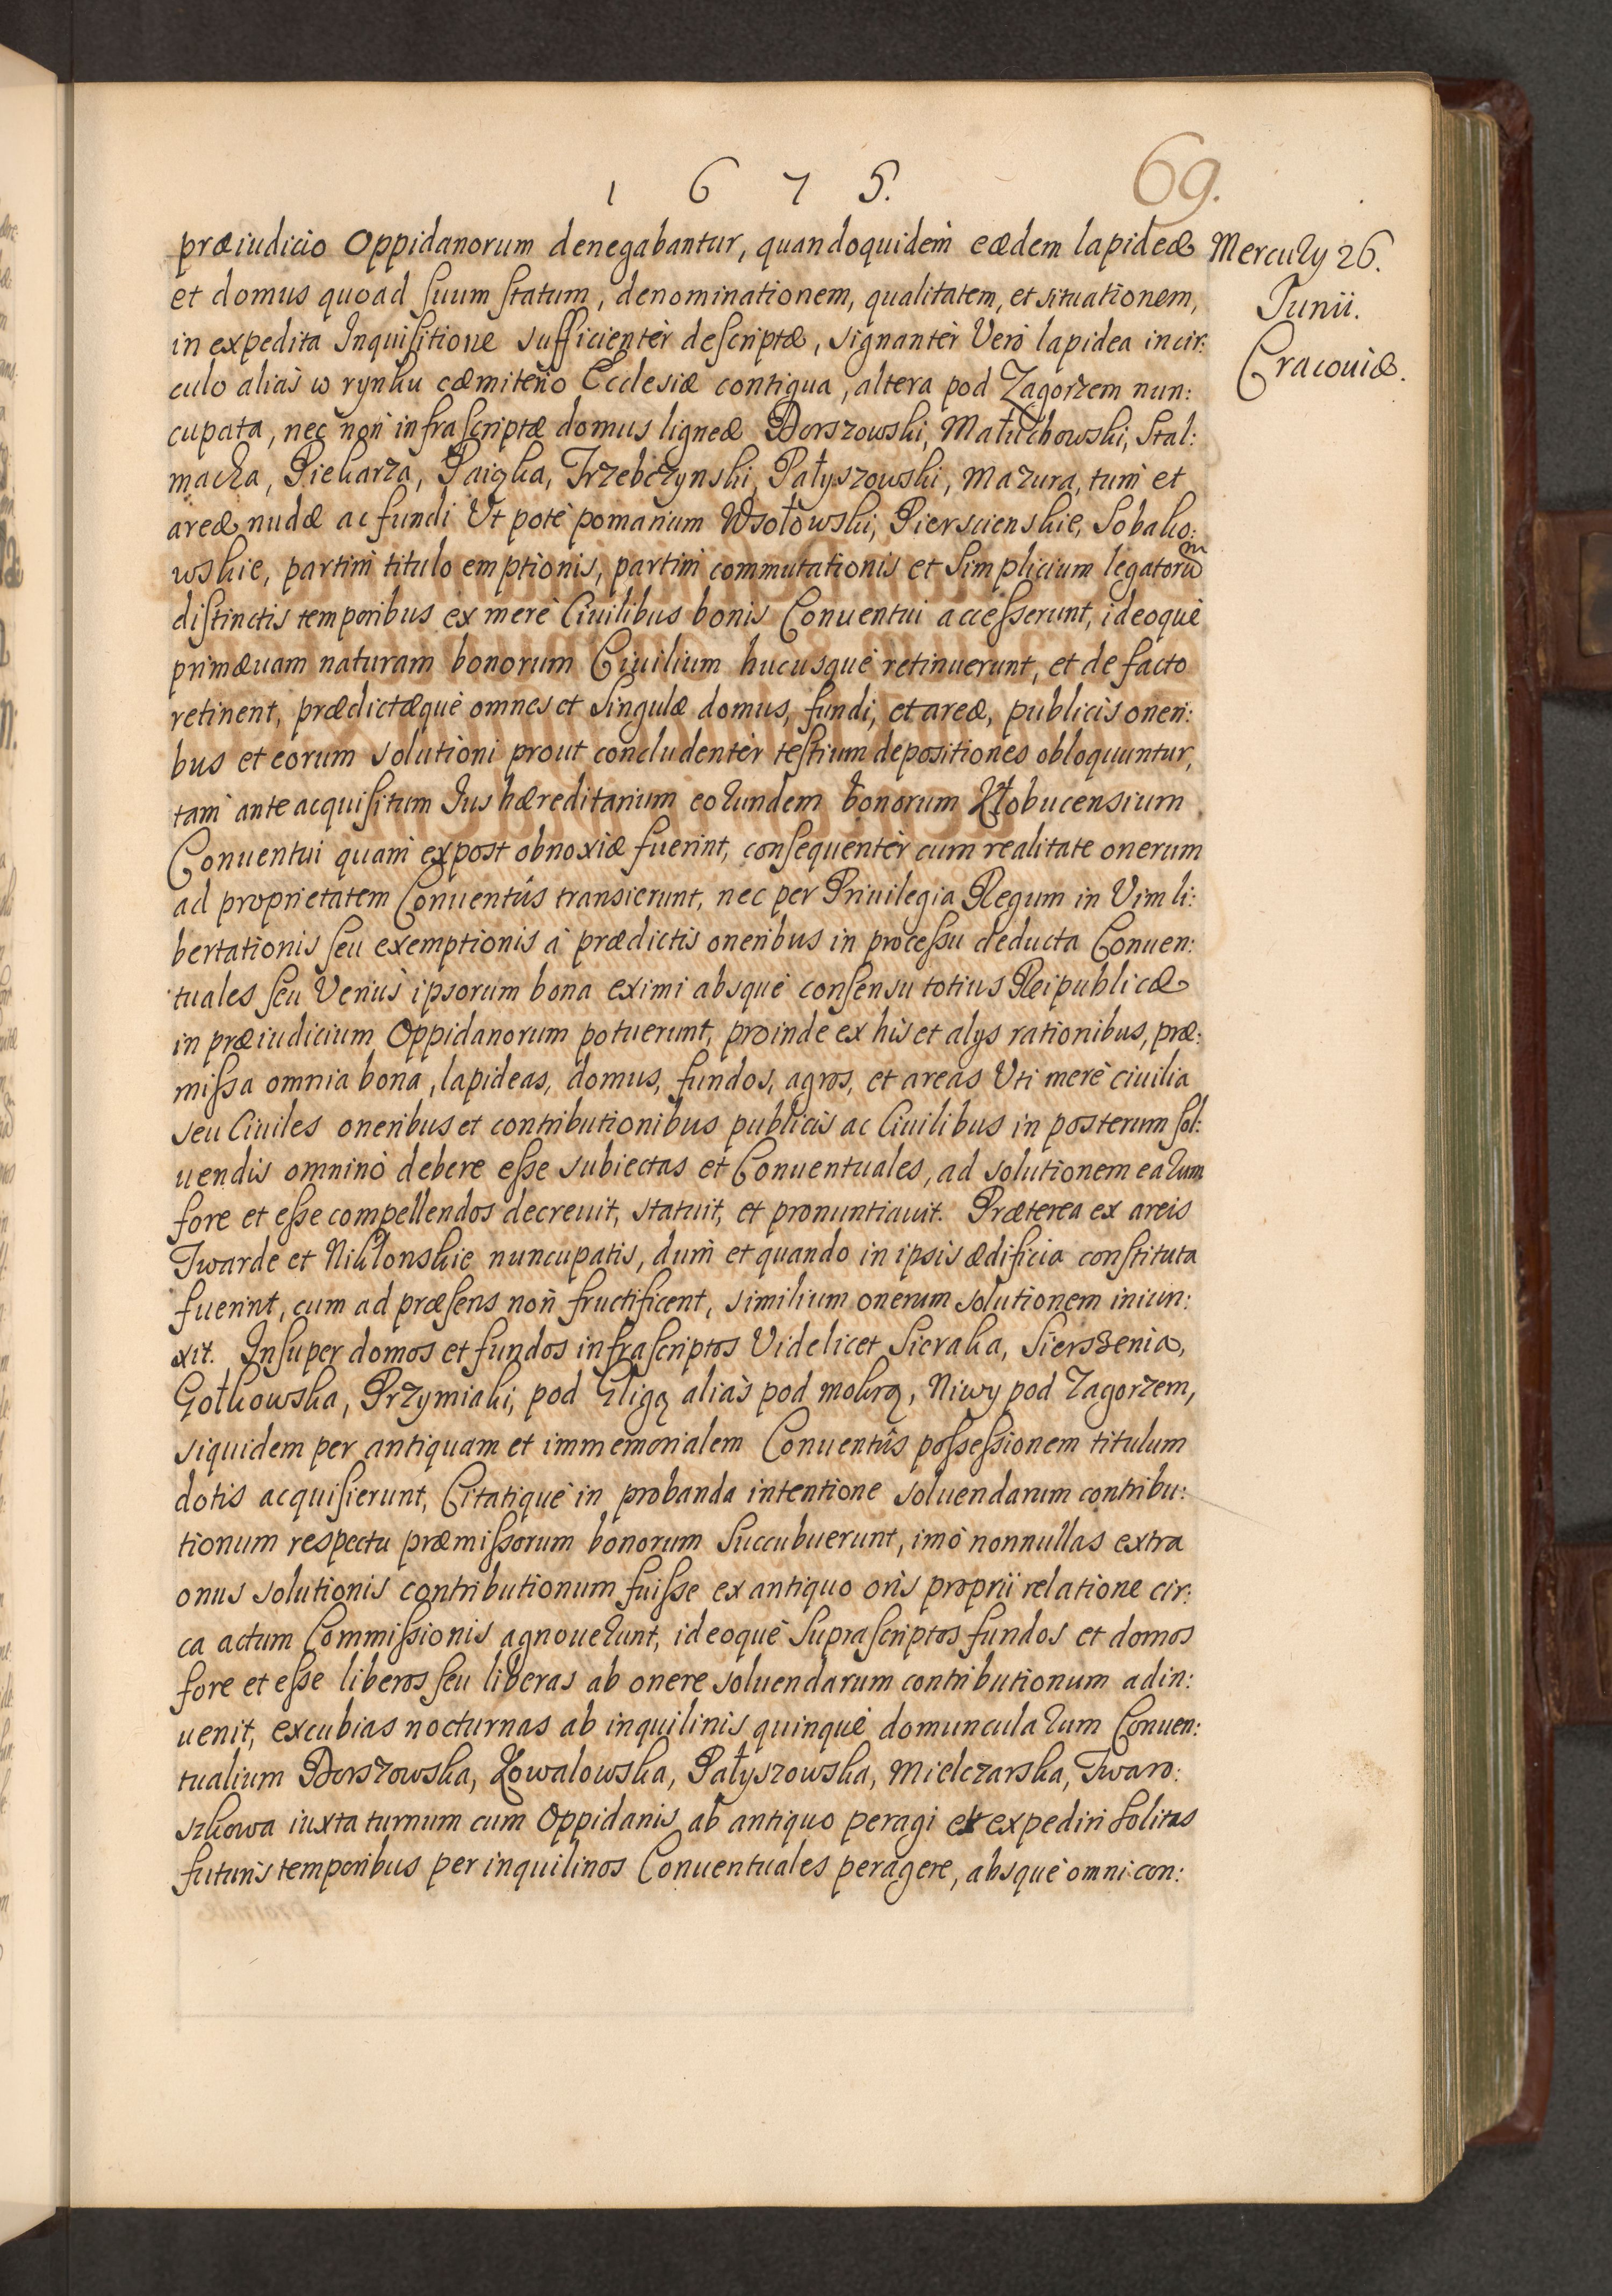 1675.
69.
præiudicio Oppidanorum denegabantur, quandoquidem eædem lapideæ
et domus quoad suum statum, denominationem, qualitatem, et situationem,
in expedita Inquisitione sufficientèr descriptæ, signantèr Verò lapidea incir:
culo aliàs w rynku cæmiterio Ecclesiæ contigua, altera pod Zagorzem nun:
cupata, nec non infrascriptæ domus ligneæ Dorszowski, Małuchowski, Stal:
macha, Piekarza, Paiąka, Trzebczynski, Pałyszowski, Mazura, tum et
areæ nudæ ac fundi Ut potè pomarium Wsołowski, Pierscienskie, Sobako:
wskie, partim titulo emptionis, partim commutationis et Simplicium legatorum
distinctis temporibus ex merè Ciuilibus bonis Conuentui accesserunt, ideoquè
primæuam naturam bonorum Ciuilium hucusquè retinuerunt, et de facto
retinent, prædictæquè omnes et Singulæ domus, fundi, et areæ, publicis oneri:
bus et eorum solutioni prout concludentèr testium depositiones obloquuntur,
tam ante acquisitum Jus hæreditarium eorundem bonorum Kłobucensium
Conuentui quam expost obnoxiæ fuerint, consequentèr cum realitate onerum
ad proprietatem Conuentûs transierunt, nec per Priuilegia Regum in Vim li:
bertationis seu exemptionis à prædictis oneribus in processu deducta Conuen:
tuales seu Veriùs ipsorum bona eximi absquè consensu totius Reipublicæ
in præiudicium Oppidanorum potuerunt, proinde ex his et alys rationibus, præ:
missa omnia bona, lapideas, domus, fundos, agros, et areas Uti merè ciuilia
seu Ciuiles oneribus et contributionibus publicis ac Ciuilibus in posterum sol:
uendis omninò debere esse subiectas et Conuentuales, ad solutionem earum
fore et esse compellendos decreuit, statuit, et pronuntiauit. Præterea ex areis
Twarde et Niklonskie nuncupatis, dum et quando in ipsis ædificia constituta
fuerint, cum ad præsens non fructificent, similium onerum solutionem iniun:
xit. Insuper domos et fundos infrascriptos Videlicet Sieraka, Sierszenia,
Gołkowska, Przymiaki, pod Gligą aliàs pod mokrą, Niwy pod Zagorzem,
siquidem per antiquam et immemorialem Conuentûs possessionem titulum
dotis acquisierunt, Citatiquè in probanda intentione soluendarum contribu:
tionum respectu præmissorum bonorum Succubuerunt, imò nonnullas extra
onus solutionis contributionum fuisse ex antiquo oris proprii relatione cir:
ca actum Commissionis agnouerunt, ideoquè Suprascriptos fundos et domos
fore et esse liberos seu liberas ab onere soluendarum contributionum adin:
uenit, excubias nocturnas ab inquilinis quinquè domuncularum Conuen:
tualium Dorszowska, Kowalowska, Pałyszowska, Mielczarska, Twaro:
szkowa iuxta turnum cum Oppidanis ab antiquo peragi et expediri Solitas
futuris temporibus per inquilinos Conuentuales peragere, absquè omni con:
Mercury 26.
Junii.
Cracouiæ.